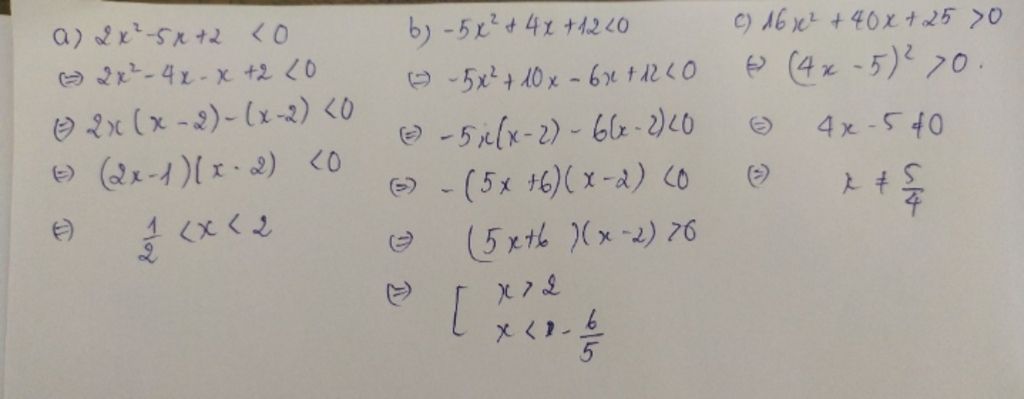 a) 2x² - 5x + 2 < 0
⇔ 2x² - 4x - x + 2 < 0
⇔ 2x(x - 2) - (x - 2) < 0
⇔ (2x - 1)(x - 2) < 0
⇔ 1/2 < x < 2
b) -5x² + 4x + 12 < 0
⇔ -5x² + 10x - 6x + 12 < 0
⇔ -5x(x - 2) - 6(x - 2) < 0
⇔ -(5x + 6)(x - 2) < 0
⇔ (5x + 6)(x - 2) > 0
⇔ [ x > 2
x < - 6/5
c) 16x² + 40x + 25 > 0
⇔ (4x - 5)² > 0.
⇔ 4x - 5 ≠ 0
⇔ x ≠ 5/4